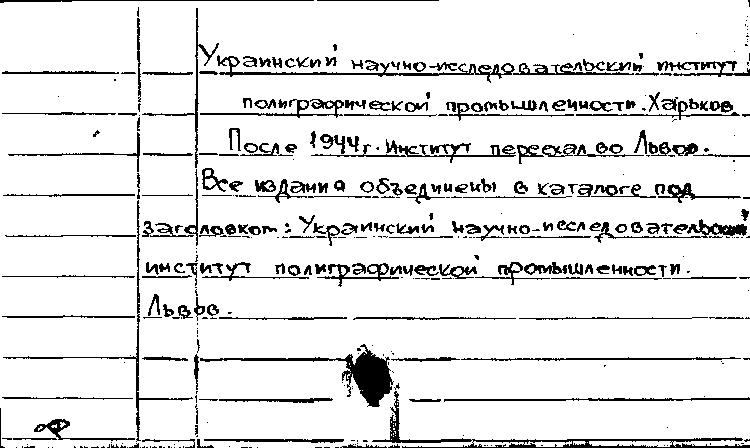 Украинский научно-исследовательский институт
полиграфической промышленности. Харьков
После 1944 г. Институт переехал во Львов.
Все издания объединены в каталоге под
заголовком: Украинский научно-исследовательский
институт полиграфической промышленности.
Львов.